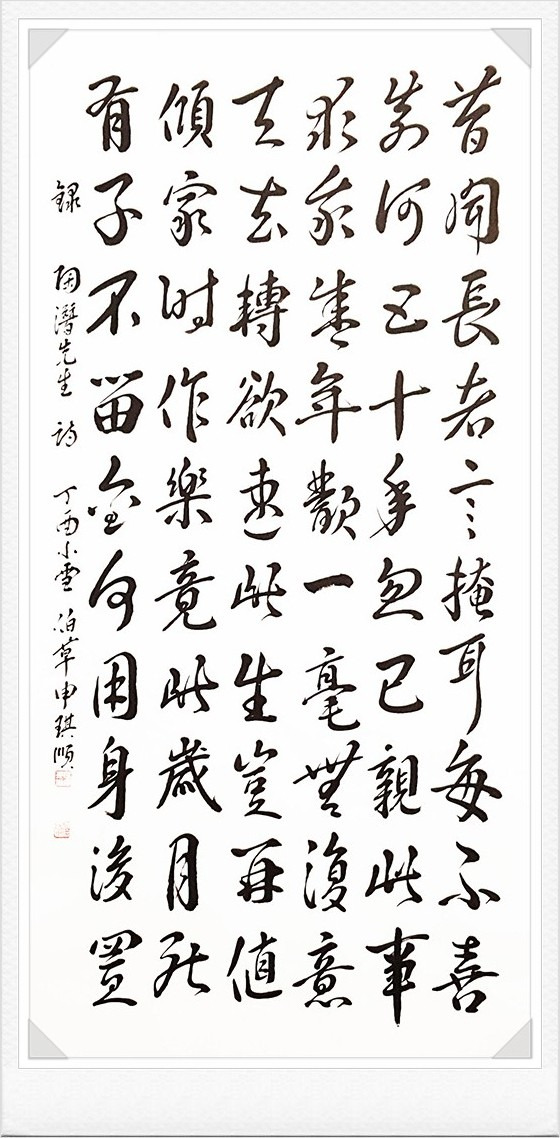 昔聞長者言掩耳每不喜
奈何五十年忽已親此事
求我盛年歡一毫無復意
去去轉欲速此生豈再値
傾家時作樂竟此歲月駛
有子不留金何用身後置
錄 陶潛先生 詩 丁酉小雪 伯草申琪順